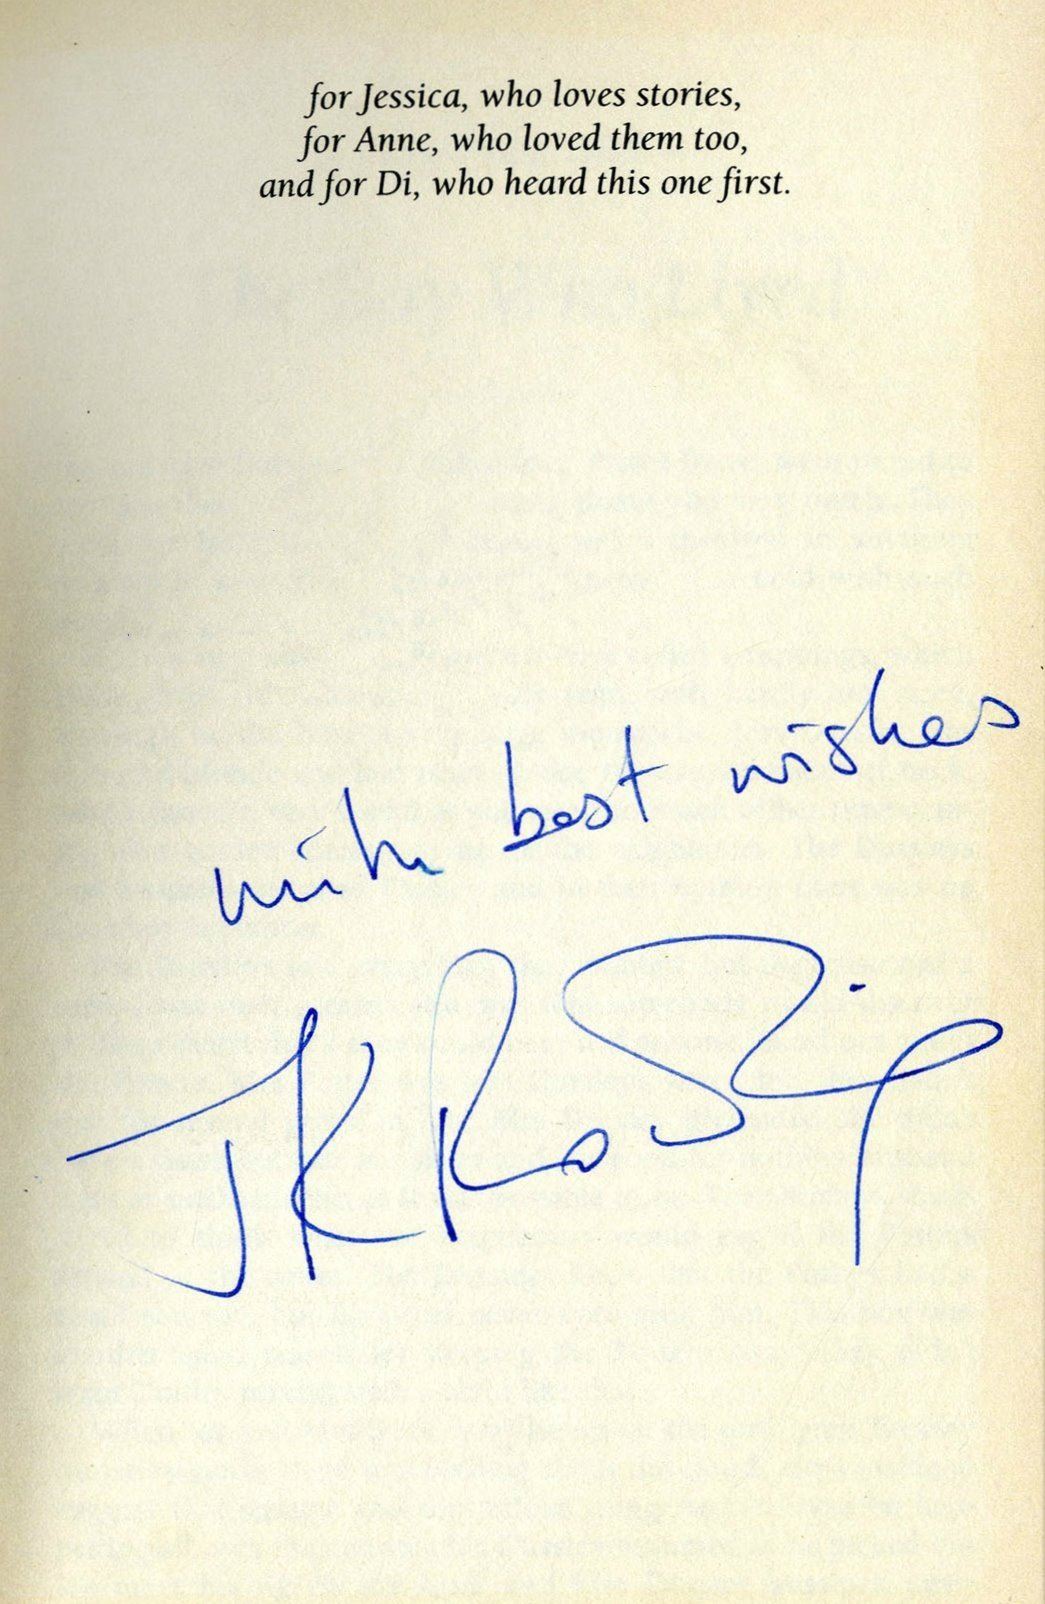 for Jessica, who loves stories,
for Anne, who loved them too,
and for Di, who heard this one first.
with best wishes
JKRowling